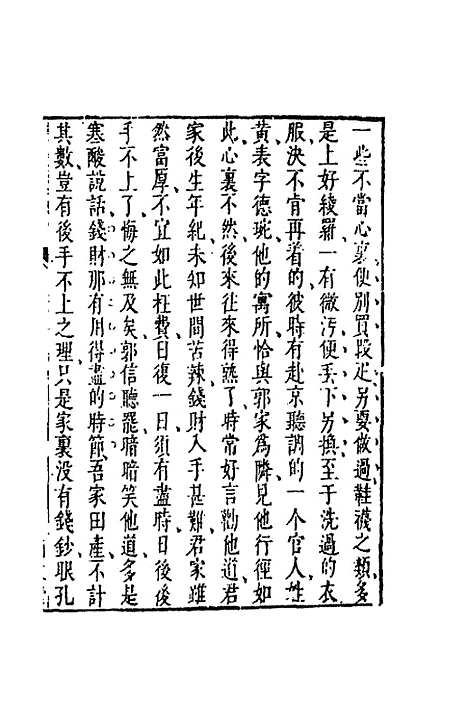 一些不當心裏便別買段疋另要做過鞋襪之類多
是上好綾羅一有微汚便丟下另換至于洗過的衣
服決不肯再着的彼時有赴京聽調的一个官人姓
黃表字德琬他的寓所恰與郭家爲隣見他行徑如
此心裏不然後來往來得熟了時常好言勸他道君
家後生年紀未知世間苦辣錢財入手甚難君家雖
然富厚不宜如此枉費日復一日須有盡時日後後
手不上了悔之無及矣郭信聽罷暗暗笑他道多是
寒酸說話錢財那有用得盡的時節吾家田產不計
其數豈有後手不上之理只是家裏没有錢鈔眼孔